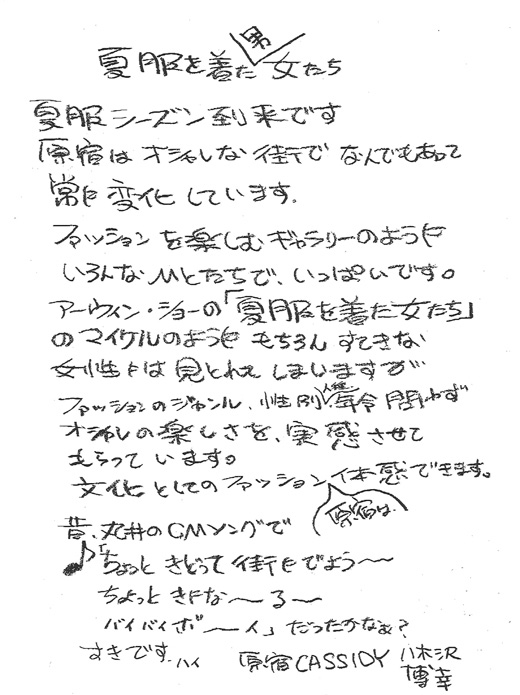 夏服を着た男女たち
夏服シーズン到来です
原宿はオシャレな街でなんでもあって
常に変化しています。
ファッションを楽しむギャラリーのように
いろんなひとたちで、いっぱいです。
アーウィン・ショーの「夏服を着た女たち」
のマイケルのようにもちろんすてきな
女性には見とれてしまいますが
ファッションのジャンル、性別、人種、年令問わず
オシャレの楽しさを、実感させて
もらっています。
文化としてのファッション体感できます。
原宿は
昔、丸井のCMソングで
♪「ちょっときどって街にでよう〜〜
ちょっときにな〜る〜
バイバイボ〜イ」だったかなぁ?
すきです。ハイ 原宿CASSIDY 八木沢
博幸